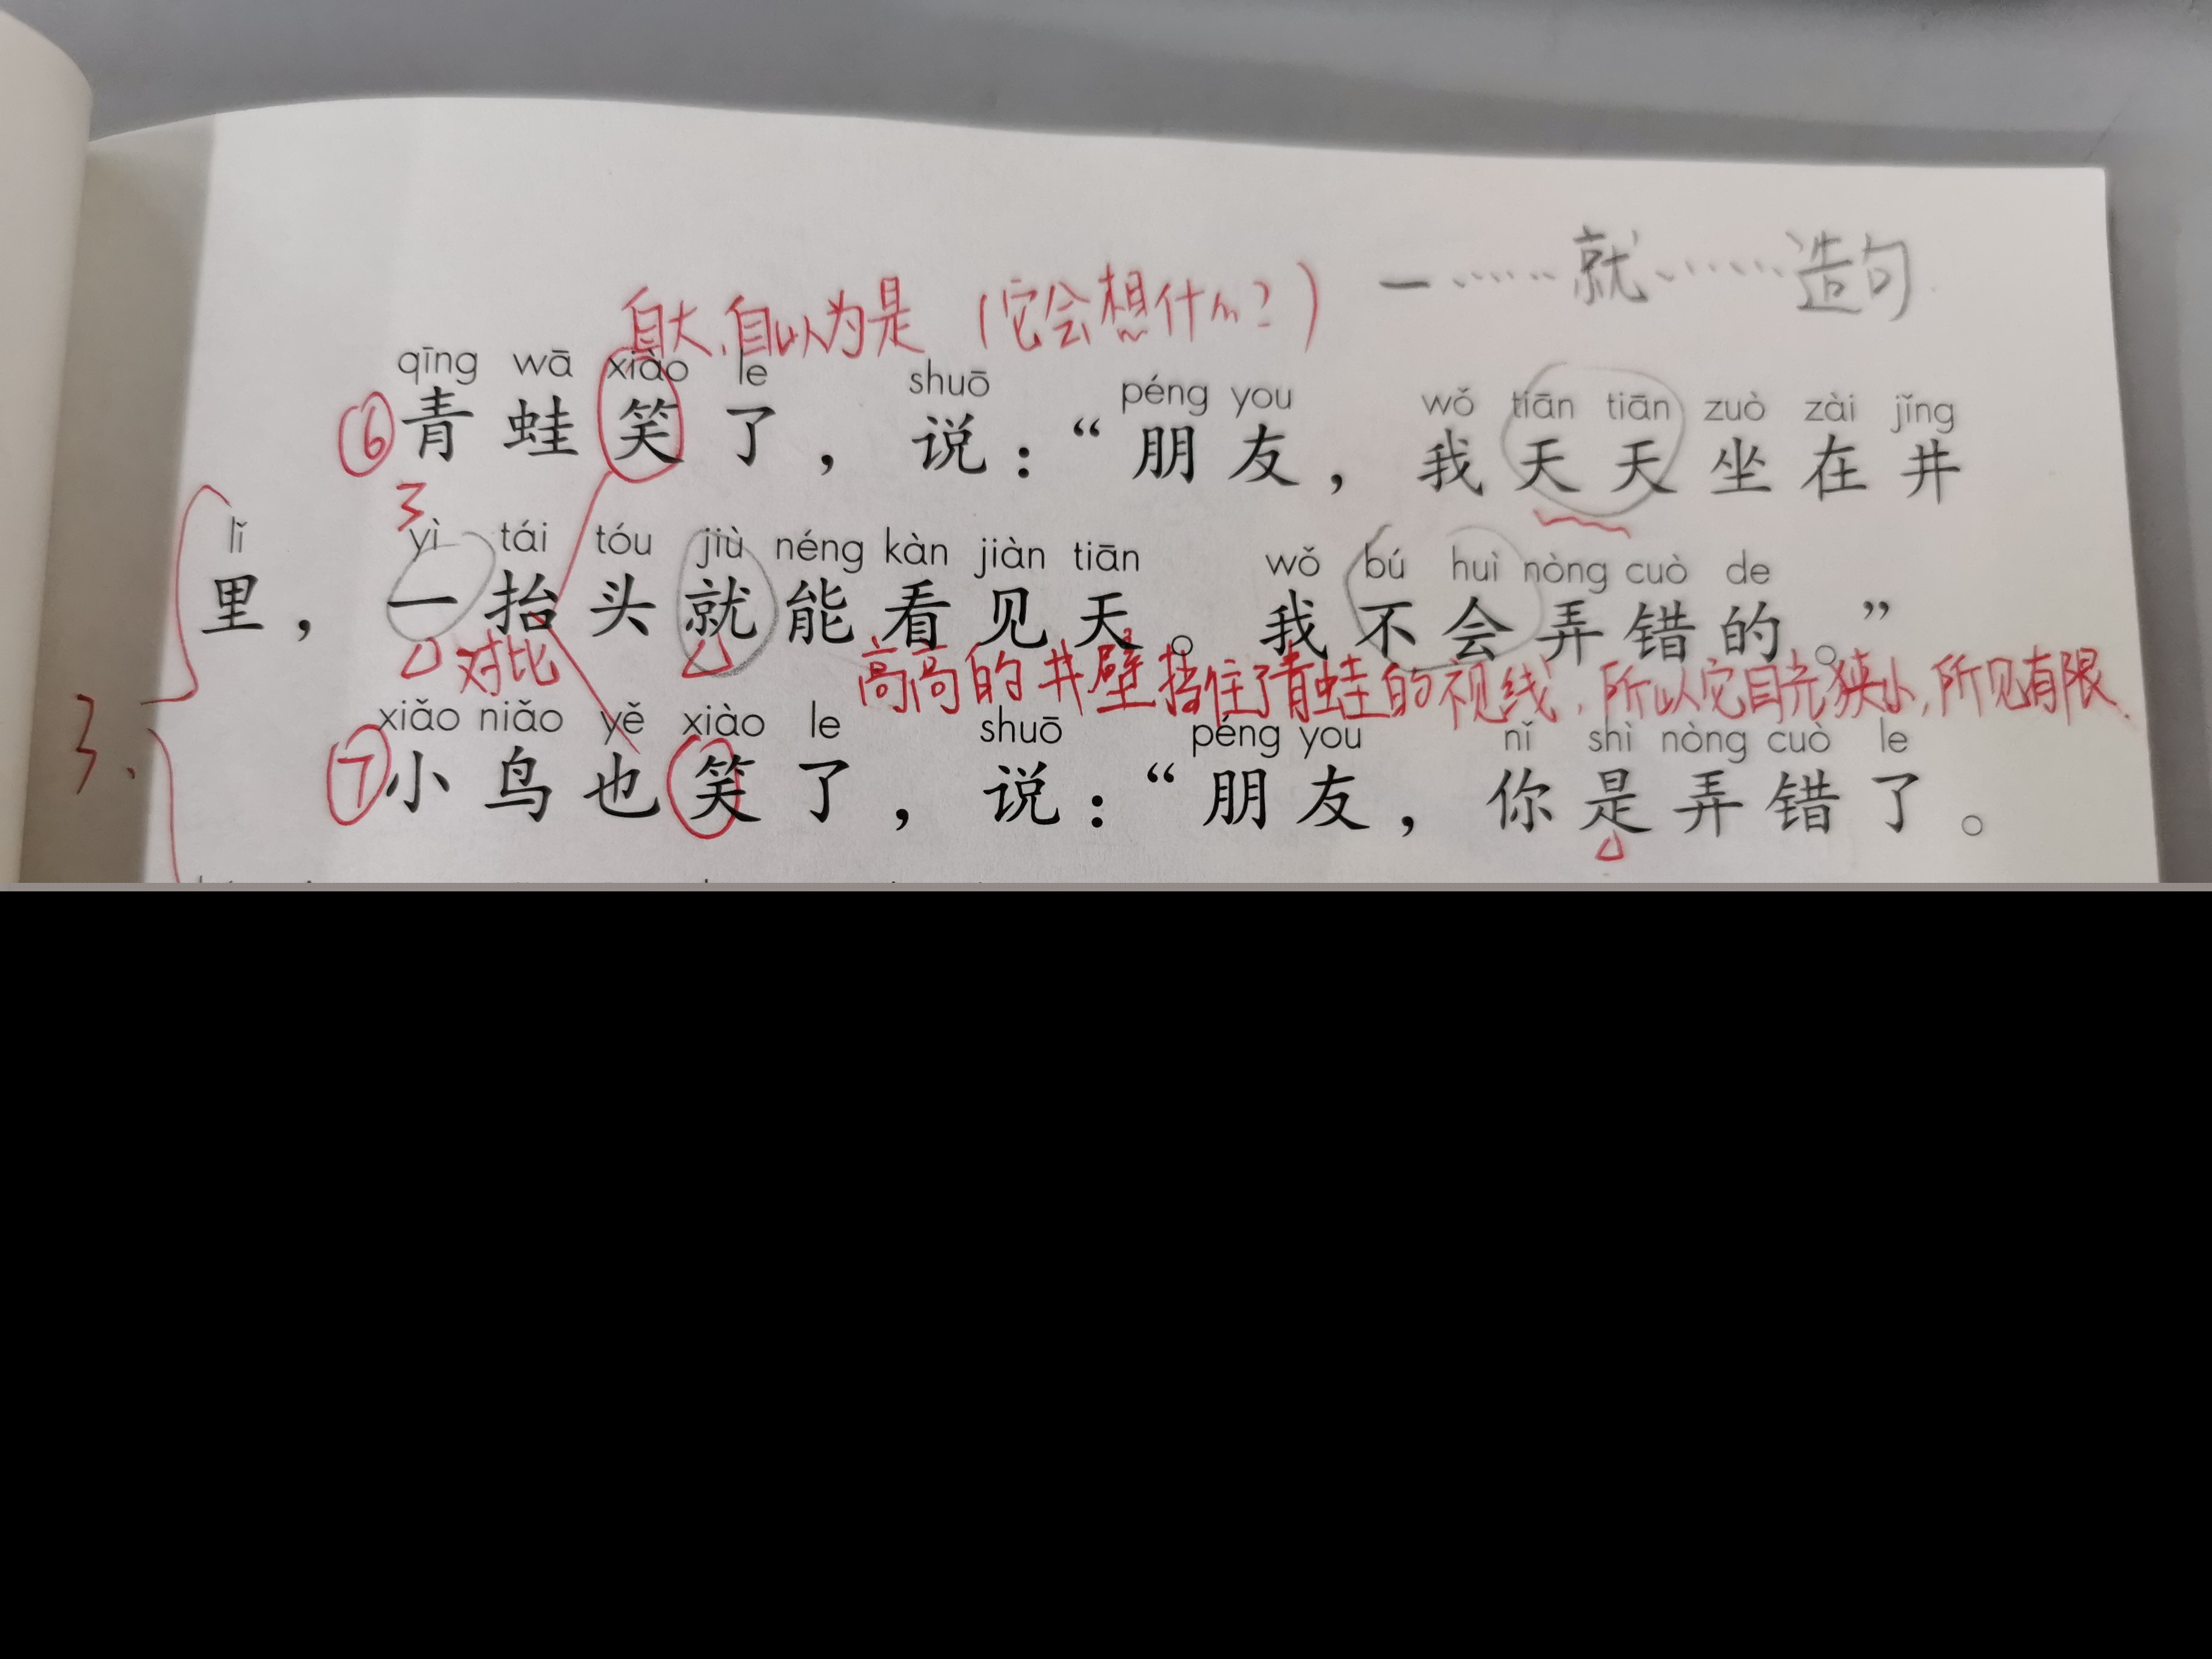 一……就……造句
自大、自以为是（它会想什么？）
qīng wā xiào le shuō péng you wǒ tiān tiān zuò zài jǐng
⑥青蛙笑了，说：“朋友，我天天坐在井
3
lǐ yì tái tóu jiù néng kàn jiàn tiān wǒ bú huì nòng cuò de
里，一抬头就能看见天。我不会弄错的。”
对比
高高的井壁挡住了青蛙的视线，所以它目光狭小，所见有限、
3、
xiǎo niǎo yě xiào le shuō péng you nǐ shì nòng cuò le
⑦小鸟也笑了，说：“朋友，你是弄错了。